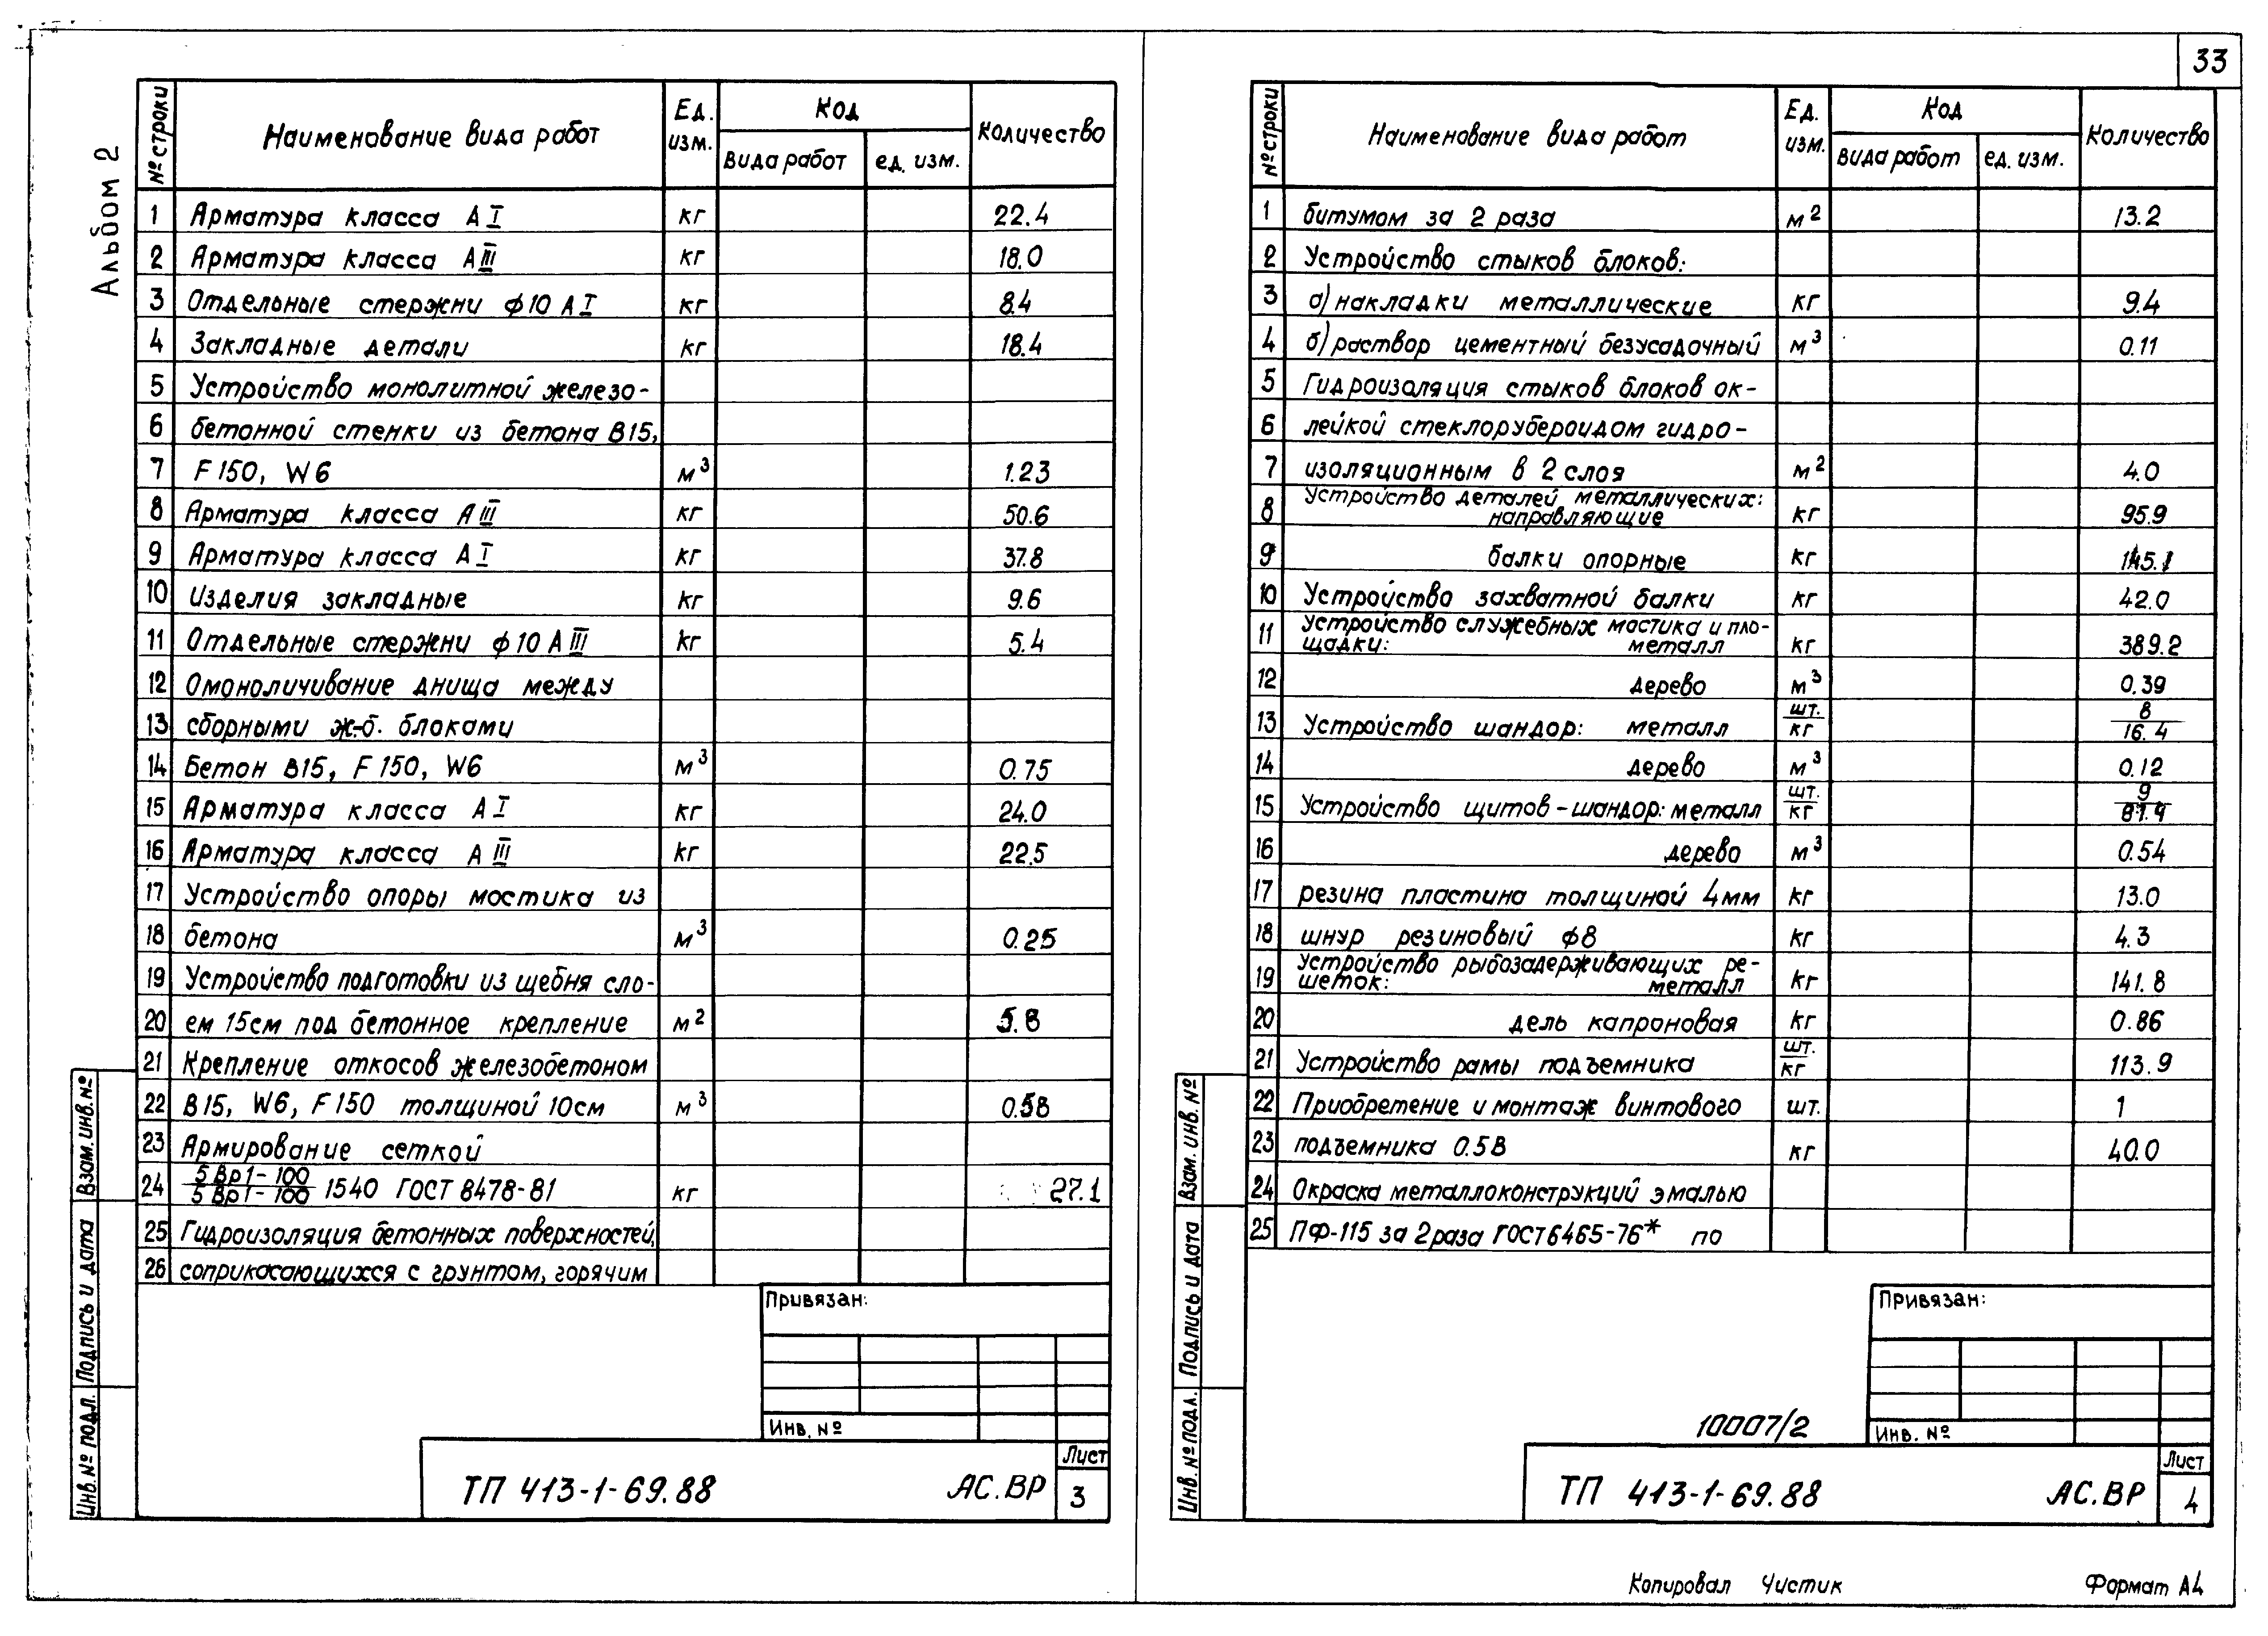 33
Альбом 2
№ строки Наименование вида работ Ед. изм. Код Количество
вида работ ед. изм.
1 Арматура класса АI кг 22.4
2 Арматура класса АIII кг 18.0
3 Отдельные стержни ф10 АI кг 8.4
4 Закладные детали кг 18.4
5 Устройство монолитной железо-
6 бетонной стенки из бетона В15,
7 F150, W6 м³ 1.23
8 Арматура класса АIII кг 50.6
9 Арматура класса АI кг 37.8
10 Изделия закладные кг 9.6
11 Отдельные стержни ф10 АIII кг 5.4
12 Омоноличивание днища между
13 сборными ж-б. блоками
14 Бетон В15, F150, W6 м³ 0.75
15 Арматура класса АI кг 24.0
16 Арматура класса АIII кг 22.5
17 Устройство опоры мостика из
18 бетона м³ 0.25
19 Устройство подготовки из щебня сло-
20 ем 15см под бетонное крепление м² 5.8
21 Крепление откосов железобетоном
22 В15, W6, F150 толщиной 10см м³ 0.58
23 Армирование сеткой
24 5Вр1-100/5Вр1-100 1540 ГОСТ 8478-81 кг 27.1
25 Гидроизоляция бетонных поверхностей,
26 соприкасающихся с грунтом, горячим
Привязан:
Инв. №
ТП 413-1-69.88 АС.ВР Лист 3
Инв. № подл. Подпись и дата Взам. инв. №
№ строки Наименование вида работ Ед. изм. Код Количество
вида работ ед. изм.
1 битумом за 2 раза м² 13.2
2 Устройство стыков блоков:
3 а) накладки металлические кг 9.4
4 б) раствор цементный безусадочный м³ 0.11
5 Гидроизоляция стыков блоков ок-
6 лейкой стеклорубероидом гидро-
7 изоляционным в 2 слоя м² 4.0
8 Устройство деталей металлических:
направляющие кг 95.9
9 балки опорные кг 145.1
10 Устройство захватной балки кг 42.0
11 Устройство служебных мостика и пло-
щадки: металл кг 389.2
12 дерево м³ 0.39
13 Устройство шандор: металл шт./кг 8/16.4
14 дерево м³ 0.12
15 Устройство щитов-шандор: металл шт./кг 9/87.4
16 дерево м³ 0.54
17 резина пластина толщиной 4мм кг 13.0
18 шнур резиновый ф8 кг 4.3
19 Устройство рыбозадерживающих ре-
шеток: металл кг 141.8
20 дель капроновая кг 0.86
21 Устройство рамы подъемника шт./кг 113.9
22 Приобретение и монтаж винтового шт. 1
23 подъемника 0.5В кг 40.0
24 Окраска металлоконструкций эмалью
25 ПФ-115 за 2 раза ГОСТ 6465-76* по
Привязан:
10007/2
Инв. №
ТП 413-1-69.88 АС.ВР Лист 4
Инв. № подл. Подпись и дата Взам. инв. №
Копировал Чистик Формат А4